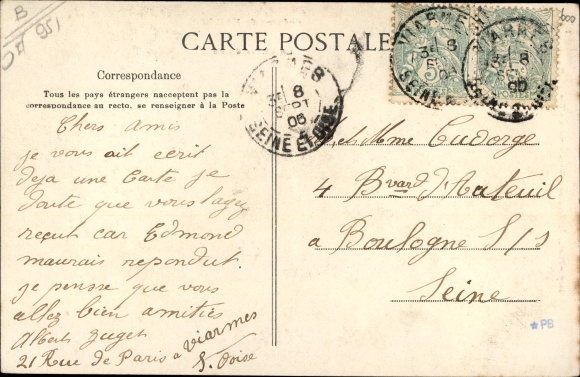 B
951
CARTE POSTALE
Correspondance
Tous les pays étrangers nacceptent pas la
correspondance au recto, se renseigner à la Poste
Chers Amis
je vous ait ecrit
deja une Carte je
doute que vous l'ayez
reçut car Edmond
maurais repondut.
je penser que vous
allez bien amitiés
Albert
21 Rue de Paris a Viarmes
S. Oise
VIARMES
8
SEPT
05
SEINE ET OISE
VIARMES
8
05
SEINE
VIARMES
8
05
5c
et Mme Cudorge
4 Bvard d'Auteuil
a Boulogne S/S
Seine
*PB